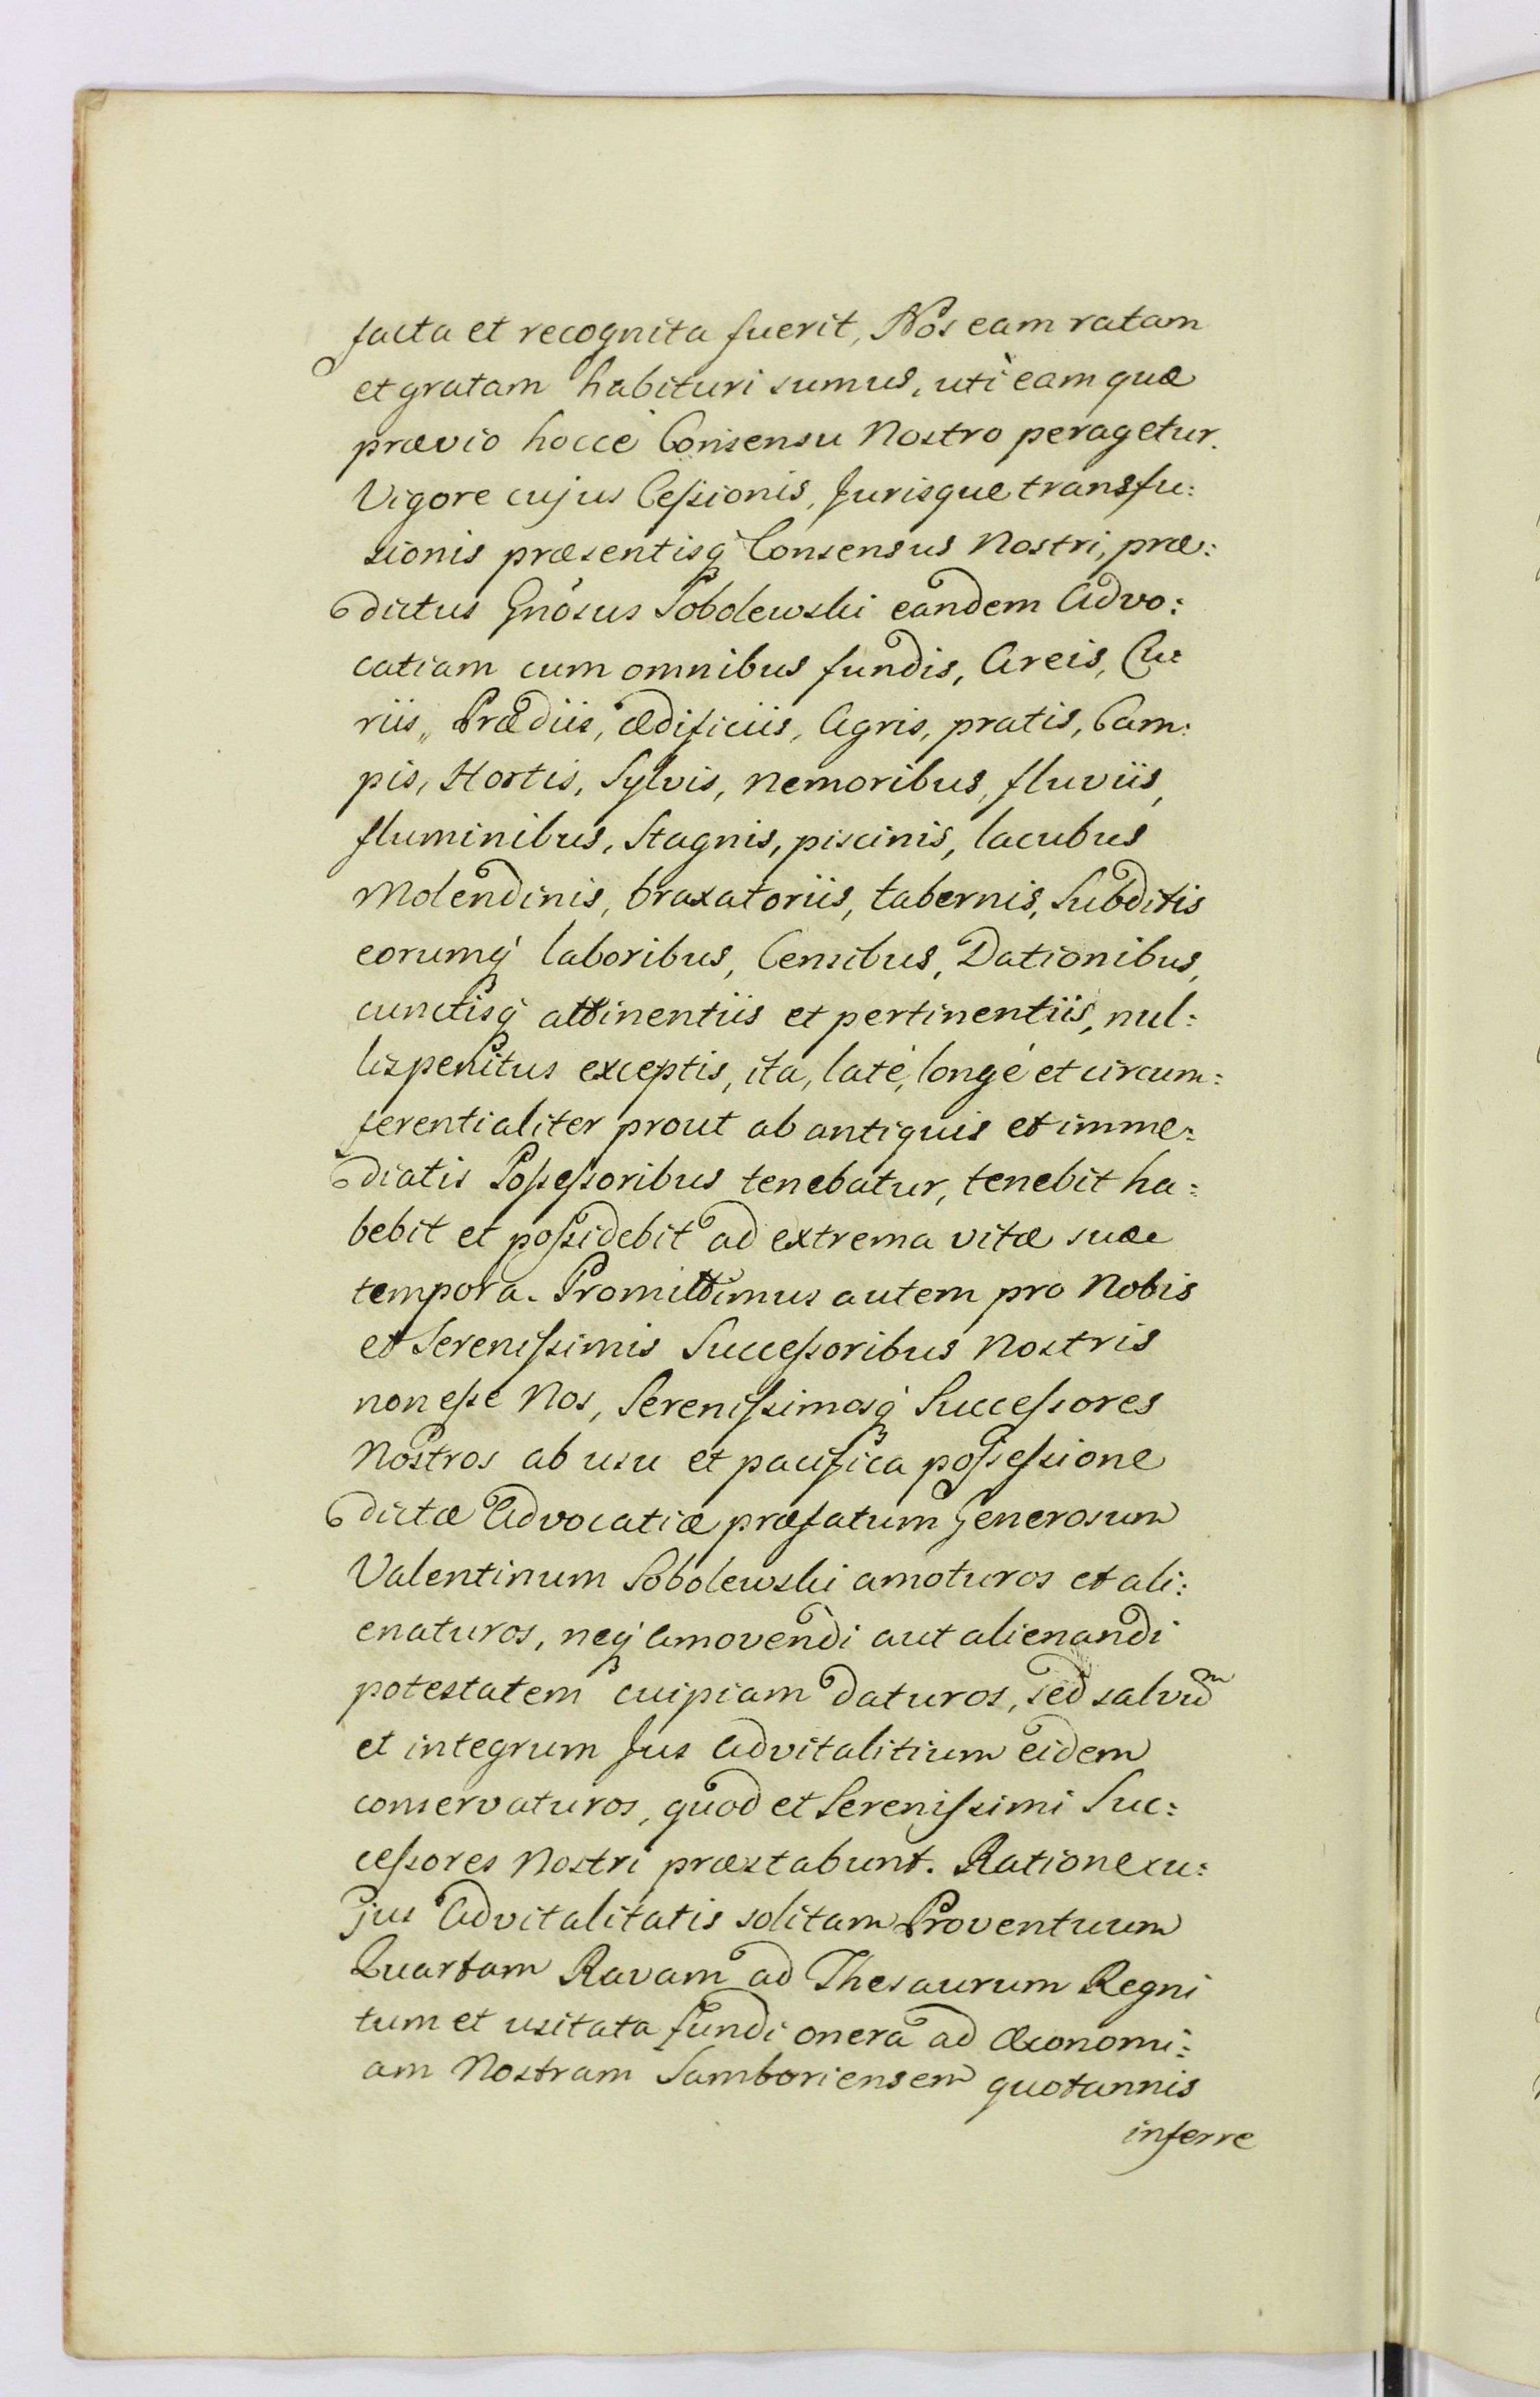 facta et recognita fuerit, Nos eam ratam
et gratam habituri sumus, uti eam quæ
prævio hocce Consensu Nostro peragetur.
Vigore cujus Ceſsionis, Jurisque transfu:
sionis præsentisq́ Consensus Nostri, præ:
dictus Gnosus Sobolewski eandem Advo:
catiam cum omnibus fundis, Areis, Cu:
riis, Prædiis, ædificiis, Agris, pratis, Cam:
pis, Hortis, Sylvis, Nemoribus, fluviis,
fluminibus, Stagnis, piscinis, lacubus
Molendinis, braxatoriis, tabernis, Subditis
eorumq́ laboribus, Censibus, Dationibus,
cunctisq́ attinentiis et pertinentiis, nul:
lis penitus exceptis, ita, latè, longè et circum:
ferentialiter prout ab antiquis et imme:
diatis Poſseſsoribus tenebatur, tenebit ha:
bebit et poſsidebit ad extrema vitæ suæ
tempora. Promittimus autem pro Nobis
et Sereniſsimis Succeſsoribus Nostris
non eſse Nos, Sereniſsimosq́ Succeſsores
Nostros ab usu et pacifica poſseſsione
dictæ Advocatiæ præfatum Generosum
Valentinum Sobolewski amoturos et ali:
enaturos, neq́ amovendi aut alienandi
potestatem cuipiam daturos, sed salvuͫ
et integrum Jus Advitalitium eidem
conservaturos, quod et Sereniſsimi Suc:
ceſsores Nostri præstabunt. Ratione cu:
jus Advitalitatis solitam Proventuum
Quartam Ravam ad Thesaurum Regni
tum et usitata fundi onera ad Œconomi:
am Nostram Samboriensem quotannis
inferre